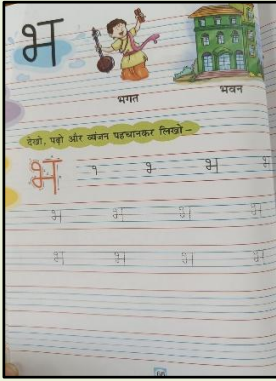 भ
भगत भवन
देखो, पढ़ो और व्यंजन पहचानकर लिखो –
भ १ भ भ
भ भ भ भ
भ भ भ भ